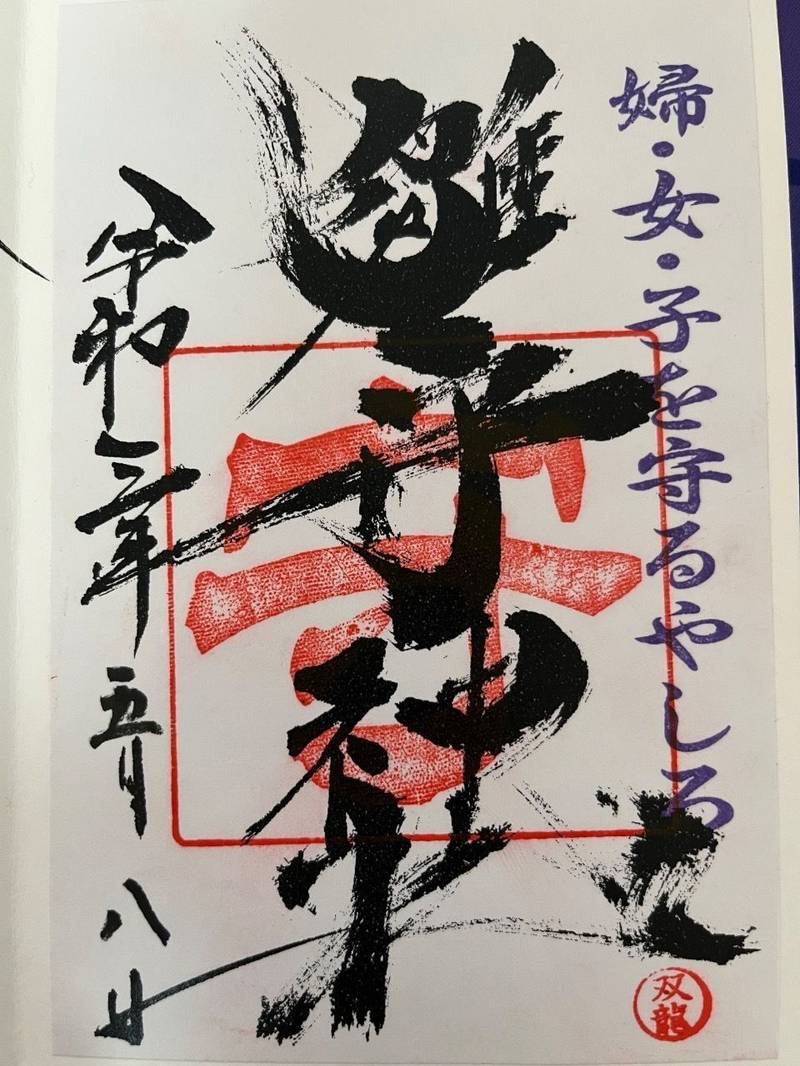 婦・女・子を守るやしろ
神社
令和三年五月八日
双龍